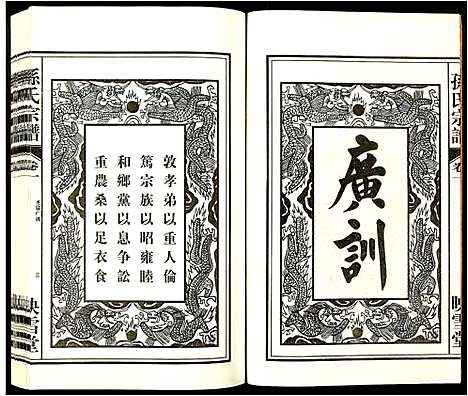 孫氏宗譜
卷一
映雪堂
廣訓
敦孝弟以重人倫
篤宗族以昭雍睦
和鄉黨以息争訟
重農桑以足衣食
孫氏宗譜
卷一
映雪堂